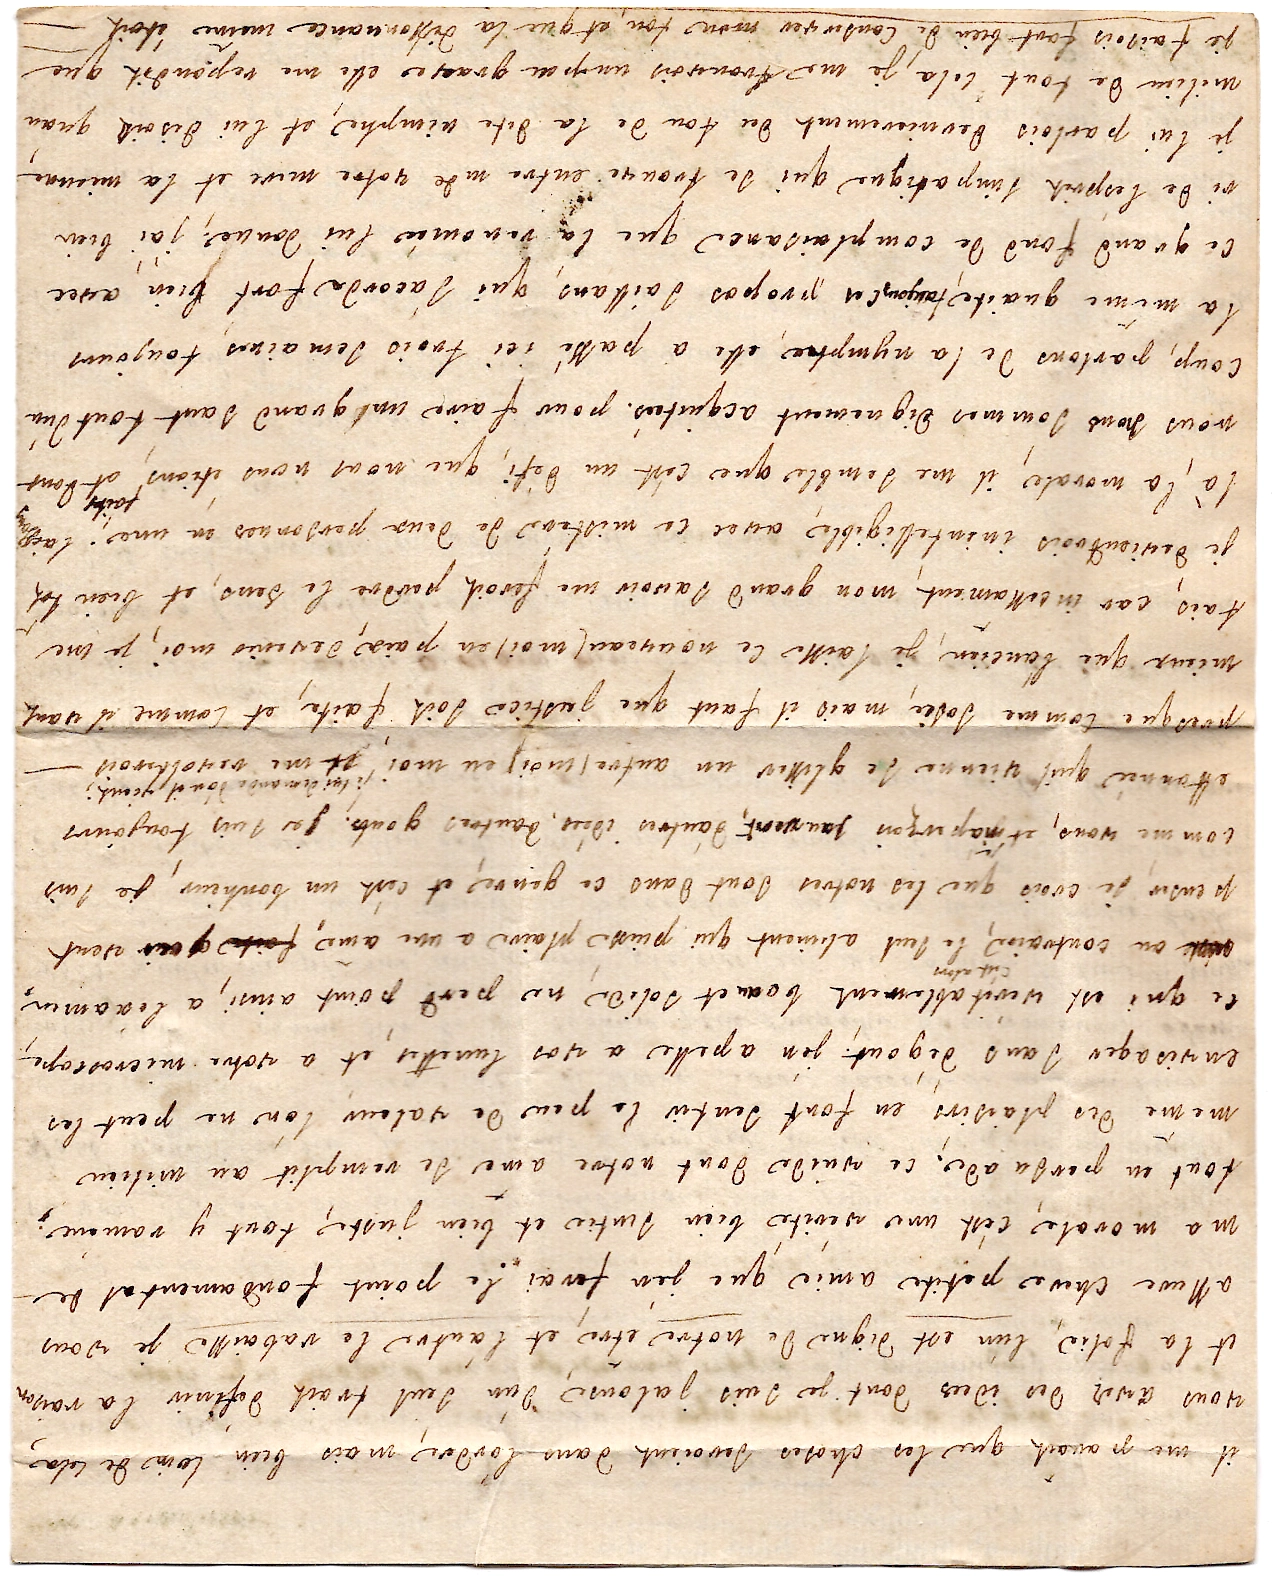 il me parait que les choses seroient dans l'ordre, mais bien loin de cela,
vous avés des idées dont je suis jalouse, d'un seul trait definir la raison
et la folie, l'un est digne de notre etre, et l'autre le rabaisse je vous
assure chere petite amie, que j'en ferai le point fondamental de
ma morale, c'est une verité bien sentie et bien juste, tout y ramene,
tout en persuade, ce vuide dont notre ame se remplit au milieu
meme des plaisirs, en font sentir le peu de valeur, l'on ne peut les
envisager sans degout, j'en apelle a vos lunettes et, a votre microscope,
ce qui est veritablement bon et solide, ne perd point ainsi, a l'examen,
c'est alors
au contraire, le seul aliment qui puisse plaire a une ame, qui veut
penser, je crois que les notres sont dans ce genre, et c'est un bonheur, je suis
comme vous, et j'aperçois souvent, d'autres idées, d'autres gouts. je suis toujours
ettonnée qu'il vienne se glisser un autre (moi) en moi, je lui demande d'ou il vient; me revolterois
presque comme sosie, mais il faut que justice soit faite, et comme il vaut
mieux que l'ancien, je laisse le nouveau (moi) en paix, devenir moi, je me
tais, car incessament, mon grand savoir me feroit perdre le sens, et bien tot
je deviendrois inintelligible, avec ce mistere de deux personnes en une; laissons
la, la morale, il me semble que c'est un defi, que nous nous etions faits, et dont
nous nous sommes dignement acquitées. pour faire un grand saut tout d'un
coup, parlons de la nymphe, elle a passé ici trois semaines, toujours
la même guaité, toujours les propos saillans, qui s'acorde fort bien, avec
ce grand fond de complaisance que la renomée lui donne; j'ai bien
ri de l'esprit simpatique qui se trouve entre mde votre mere et la mienne,
je lui parlois dernierement du ton de la dite nimphe, et lui disoit qu'au
milieu de tout cela, je me trouvois un peu grave elle me repondit que
je faisois fort bien de conserver mon ton, et que la dissonnance meme etoit